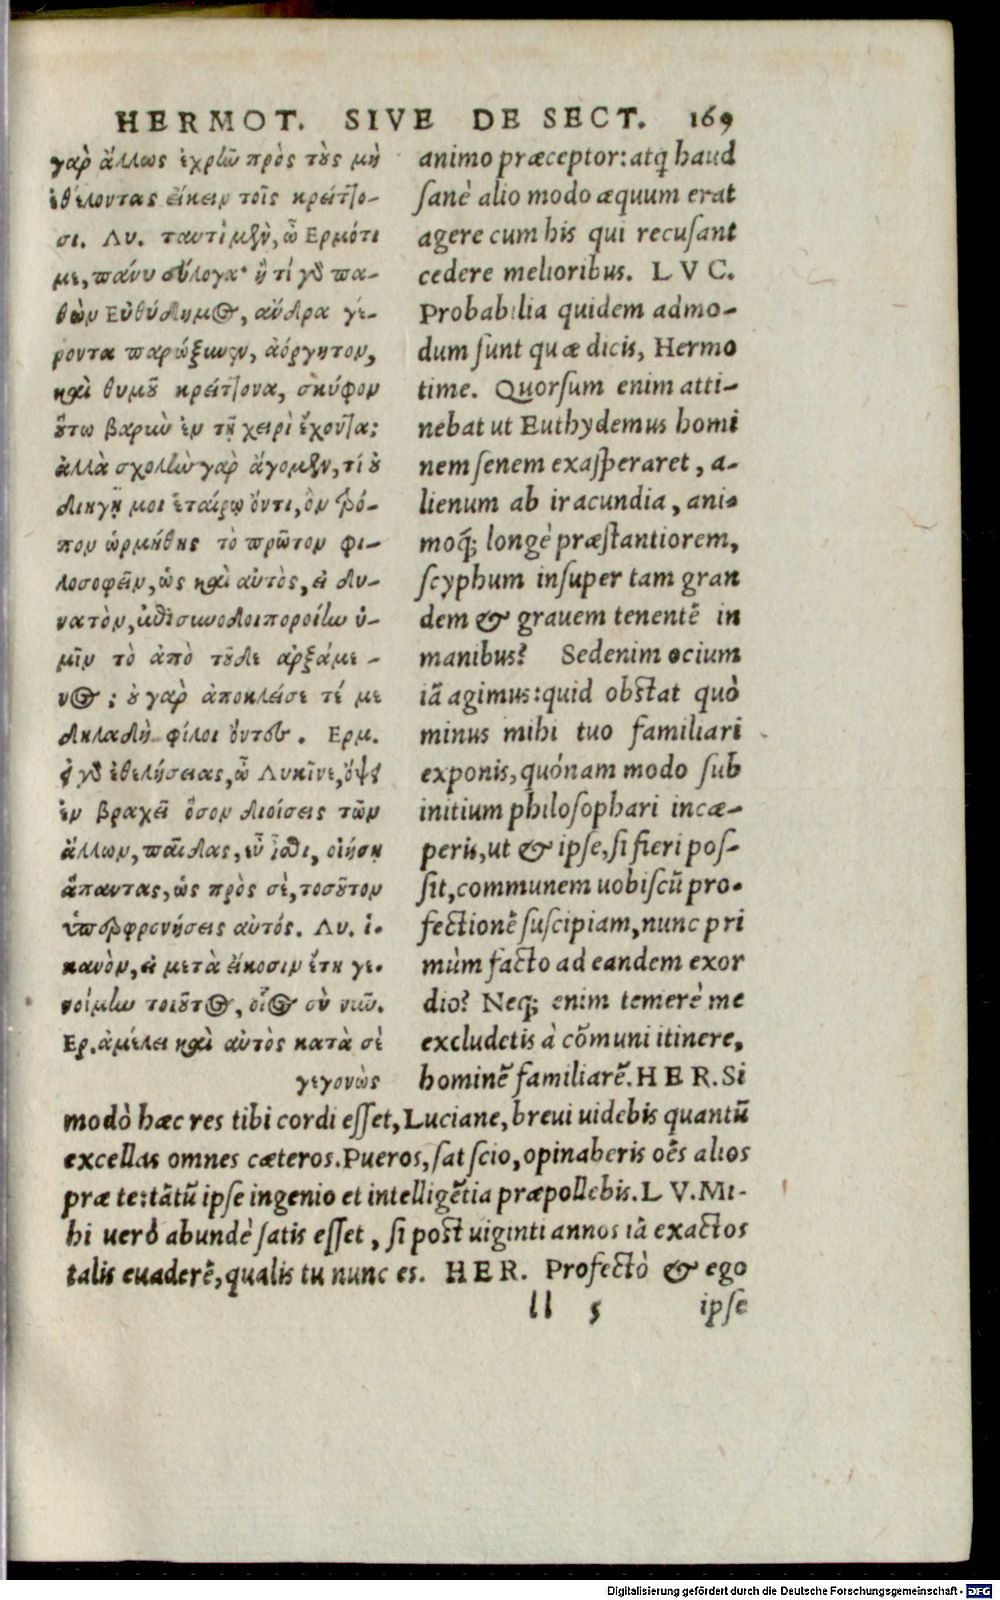 HERMOT. SIVE DE SECT. 169
γαρ ἄλλως ἐχρῆν πρὸς τοὺς μὴ
ἐθέλοντας εἴκειν τοῖς κρείττο-
σι. Λυ. ταυτὶ μὲν, ὦ Ερμότι
με, πάνυ εὔλογα· ἢ τί γὰρ πα-
θὼν Εὐθύδημος, ἄνδρα γέ-
ροντα παρώξυνεν, ἀόργητον,
καὶ θυμοῦ κρείττονα, σκύφον
οὕτω βαρὺν ἐν τῇ χειρὶ ἔχοντα;
ἀλλὰ σχολὴν γαρ ἄγομεν, τί οὐ
διηγῇ μοι ἑταίρῳ ὄντι, ὃν τρό-
πον ὡρμήθης τὸ πρῶτον φι-
λοσοφεῖν, ὡς καὶ αὐτὸς, εἰ δυ-
νατὸν, συνοδοιποροίην ὑ-
μῖν τὸ ἀπὸ τοῦδε ἀρξάμε-
νος; οὐ γαρ ἀποκλείσετέ με
δηλαδὴ φίλοι ὄντες. Ερμ.
εἰ γὰρ ἐθελήσειας, ὦ Λυκῖνε, ὄψει
ἐν βραχεῖ ὅσον διοίσεις τῶν
ἄλλων, παῖδας, εὖ ἴσθι, οἰήσῃ
ἅπαντας, ὡς πρὸς σὲ, τοσοῦτον
ὑπερφρονήσεις αὐτός. Λυ. ἱ-
κανὸν, εἰ μετὰ εἴκοσιν ἔτη γε-
νοίμην τοιοῦτος, οἷος σὺ νῦν.
Ερ. ἀμέλει καὶ αὐτὸς κατὰ σὲ
γεγονὼς
animo præceptor: atq; haud
sanè alio modo æquum erat
agere cum his qui recusant
cedere melioribus. L V C.
Probabilia quidem admo-
dum sunt quæ dicis, Hermo
time. Quorsum enim atti-
nebat ut Euthydemus homi
nem senem exasperaret, a-
lienum ab iracundia, ani-
moq; longè præstantiorem,
scyphum insuper tam gran
dem & grauem tenentē in
manibus? Sed enim ocium
iā agimus: quid obstat quò
minus mihi tuo familiari
exponis, quónam modo sub
initium philosophari incœ-
peris, ut & ipse, si fieri pos-
sit, communem uobiscū pro-
fectionē suscipiam, nunc pri
mùm facto ad eandem exor
dio? Neq; enim temerè me
excludetis à cōmuni itinere,
hominē familiarē. H E R. Si
modò hæc res tibi cordi esset, Luciane, breui uidebis quantū
excellas omnes cæteros. Pueros, sat scio, opinaberis oēs alios
præ te: tātū ipse ingenio et intelligētia præpollebis. L V. Mi-
hi uerò abundè satis esset, si post uiginti annos iā exactos
talis euaderē, qualis tu nunc es. H E R. Profectò & ego
ll 5 ipse
Digitalisierung gefördert durch die Deutsche Forschungsgemeinschaft - DFG